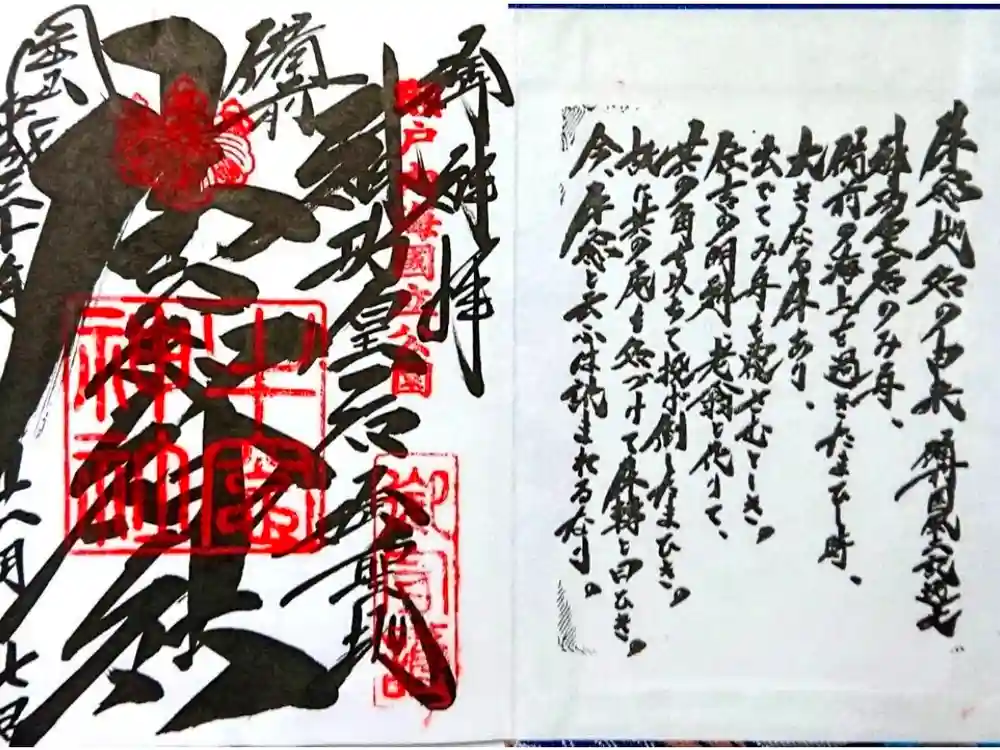 瀬戸内海國立公園
神功皇后
備前
牛窓神社
牛窓神社
平成三十年
十一月七日
牛窓地名の由来 備前国風土記逸文
神功皇后のみ舟、
備前の海上を過ぎたまひし時、
大きなる牛あり、
出でてみ舟を覆さむとしき。
住吉の明神、老翁と化りて、
其の角を以ちて投げ倒したまひき。
故に其の処を名づけて牛轉と曰ひき。
今、牛窓と云ふは訛まれるなり。